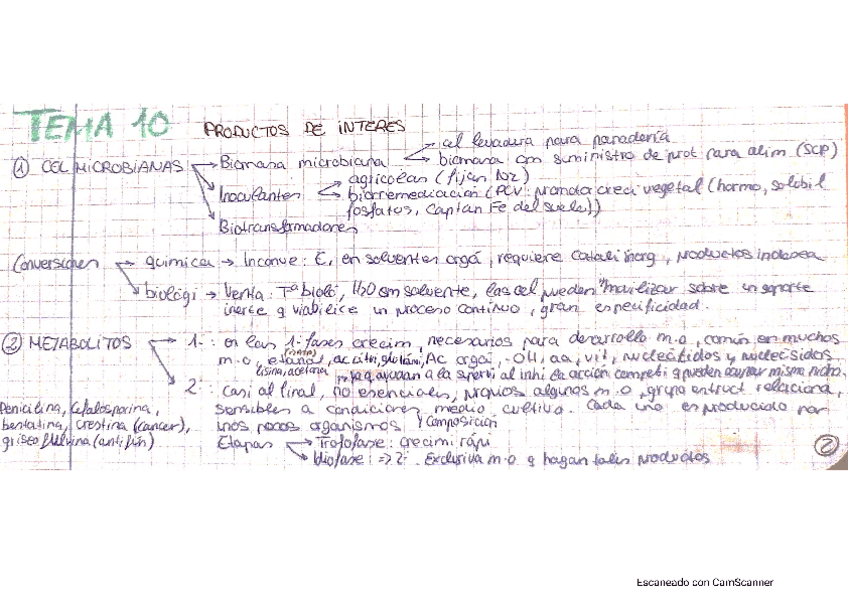 TEMA 10 PRODUCTOS DE INTERES
cel levadura para panadería
① CEL MICROBIANAS → Biomasa microbiana biomasa om suministro de prot para alim (SCP)
agrícolas (fijan N2)
Inoculantes biorremediación (PCV: promotor creci vegetal (hormo, solubil
fosfatos, captan Fe del suelo))
Biotransformadores
Conversiones → química → Inconve: E, en solventes orgá, requiere catali inorg, productos indesea
biológi → Venta: Tª bioló, H2O om solvente, las cel pueden inmovilizar sobre un soporte
inerte q viabilice un proceso continuo, gran especificidad.
② METABOLITOS → 1-: en las 1- fases crecim, necesarios para desarrollo m.o, común en muchos
m.o, etanol, ac citri, glutámi, Ac orgá, -OH, aa, vit, nucleótidos y nucleósidos
lisina, acetona q ayudan a la superv al inhi la acción competi q pueden ocupar mismo nicho.
2-: casi al final, no esenciales, propios algunos m.o, grupo estruct relaciona,
Penicilina, Cefalosporina, sensibles a condiciones medio cultivo. Cada uno es producido por
bestatina, crestina (cancer), unos pocos organismos y composición
griseofulvina (antifún) Etapas → Trofofase: crecimi rápi
Idiofase: => 2-. Exclusiva m.o q hagan tales productos
②
Escaneado con CamScanner